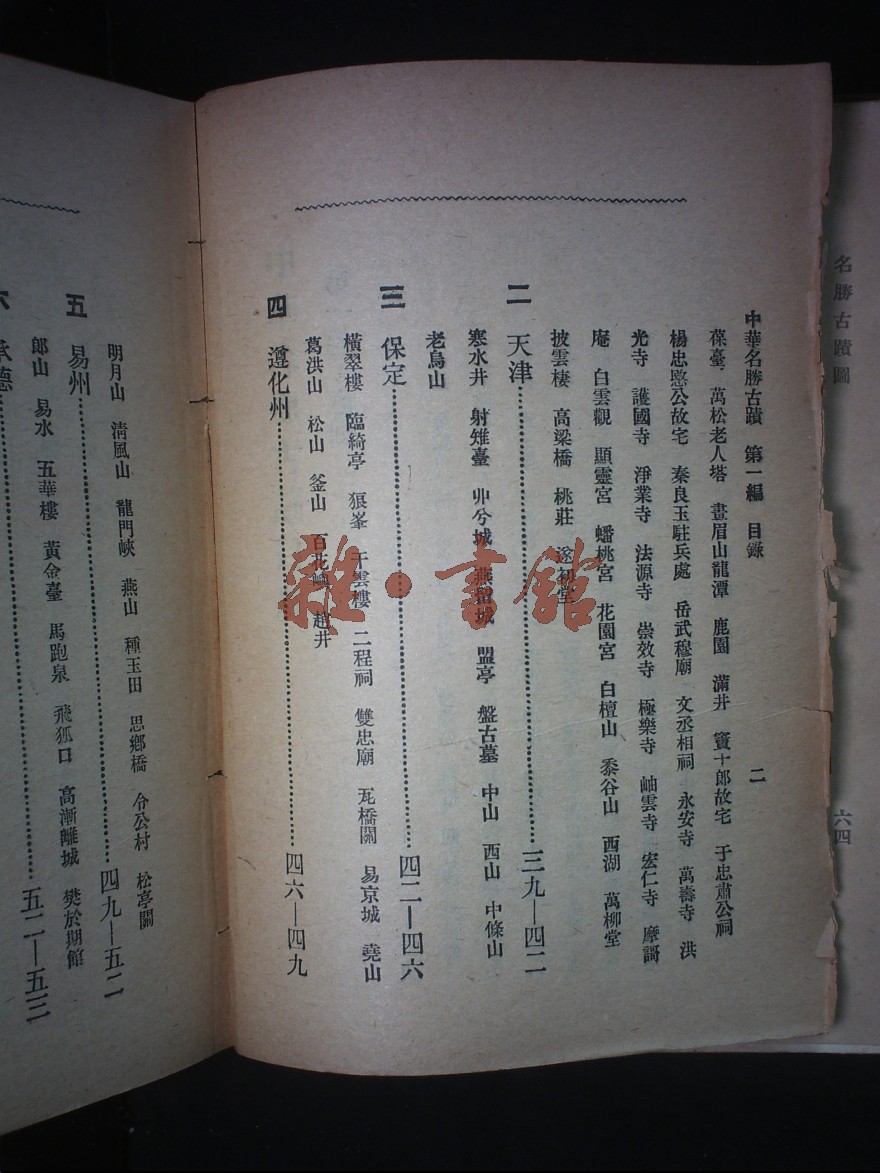 名勝古蹟圖
六四
中華名勝古蹟 第一編 目錄
二
葆臺 萬松老人塔 畫眉山龍潭 鹿園 滿井 竇十郎故宅 于忠肅公祠
楊忠愍公故宅 秦良玉駐兵處 岳武穆廟 文丞相祠 永安寺 萬壽寺 洪
光寺 護國寺 淨業寺 法源寺 崇效寺 極樂寺 岫雲寺 宏仁寺 摩訶
庵 白雲觀 顯靈宮 蟠桃宮 花園宮 白檀山 黍谷山 西湖 萬柳堂
披雲棲 高梁橋 桃莊 遂初堂
二 天津 三九—四二
寒水井 射雉臺 丱兮城 燕留城 盟亭 盤古墓 中山 西山 中條山
老烏山
三 保定 四二—四六
橫翠樓 臨綺亭 狼峯 干雲樓 二程祠 雙忠廟 瓦橋關 易京城 堯山
葛洪山 松山 釜山 百花 趙井
四 遵化州 四六—四九
明月山 清風山 龍門峽 燕山 種玉田 思鄉橋 令公村 松亭關
五 易州 四九—五二
郎山 易水 五華樓 黃金臺 馬跑泉 飛狐口 高漸離城 樊於期館
六 承德 五二—五三
雜·書館